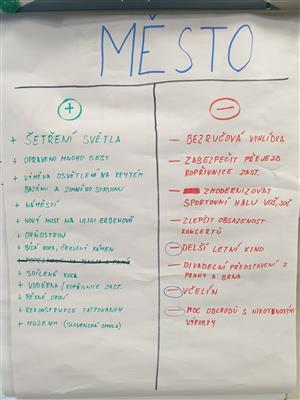 MĚSTO
+
+ ŠETŘENÍ SVĚTLA
+ OPRAVENO MNOHO CEST
+ VÝMĚNA OSVĚTLENÍ NA KRYTÉM
BAZÉNU A ZIMNÍHO STADIONU
+ NÁMĚSTÍ
+ NOVÝ MOST NA ULICI ERBENOVĚ
+ OHŇOSTROJ
+ BÍLÁ HORA, ČERVENÝ KÁMEN
+ SDÍLENÁ KOLA
+ VODÁRNA / KOPŘIVNICE ZAST.
+ PĚKNÉ OKOLÍ
+ REKONSTRUKCE TATROVANKY
+ MUZEUM (SLOVENSKÁ STRELA)
−
− BEZRUČOVA VYHLÍDKA
− ZABEZPEČIT PŘEJEZD
KOPŘIVNICE ZAST.
− ZMODERNIZOVAT
SPORTOVNÍ HALU VOŠ, SOŠ
− ZLEPŠIT OBSAZENOST
KONCERTŮ
− DELŠÍ LETNÍ KINO
− DIVADELNÍ PŘEDSTAVENÍ Z
PRAHY A BRNA
− VČELÍN
− MOC OBCHODŮ S NIKOTINOVÝMI
VÝROBKY